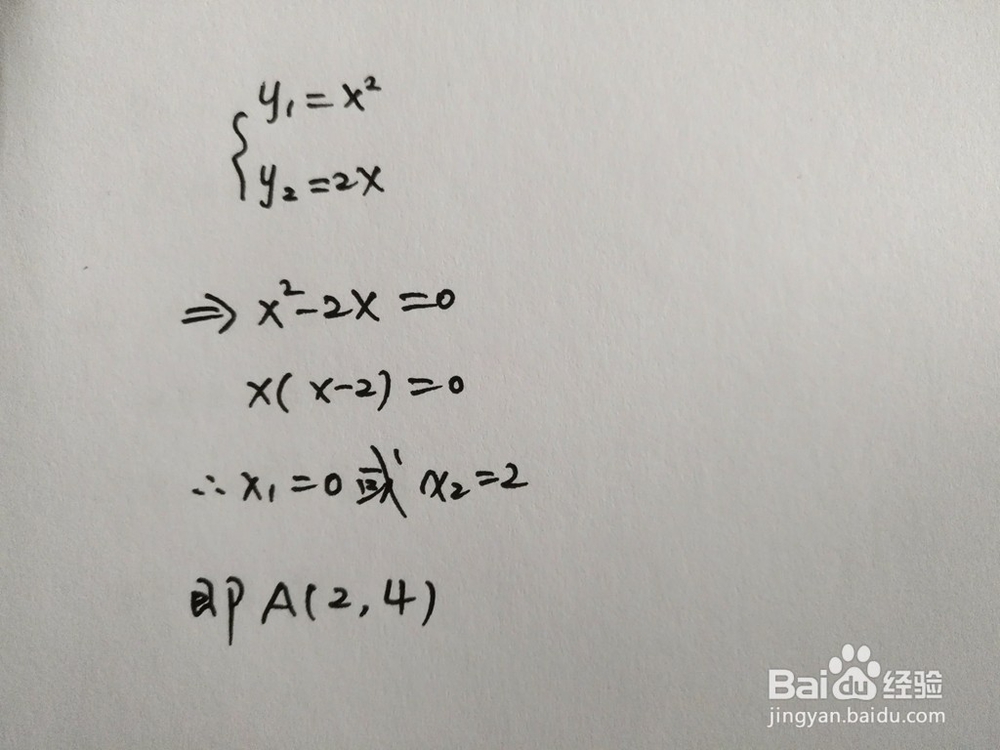 y₁=x²
y₂=2x
⇒ x²-2x=0
x(x-2)=0
∴x₁=0或x₂=2
即A(2,4)
Baidu经验
jingyan.baidu.com